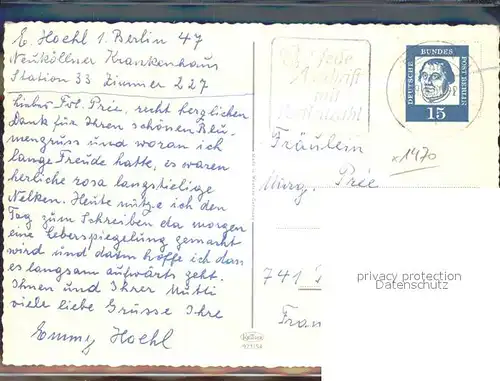 E. Hoehl 1. Berlin 47
Neuköllner Krankenhaus
Station 33 Zimmer 227
Liebes Frl. Prée, recht herzlichen
Dank für Ihren schönen Blu-
mengruss und woran ich
lange Freude hatte, es waren
herliche rosa langstielige
Nelken. Heute nütze ich den
Tag zum Schreiben da morgen
eine Leberspiegelung gemacht
wird und dann hoffe ich das
es langsam aufwärts geht.
Ihnen und Ihrer Mutti
viele liebe Grüsse Ihre
Emmy Hoehl
In jede
Anschrift
mit
Postleitzahl
DEUTSCHE BUNDES POST BERLIN
15
x1470
Fräulein
Marg. Prée
741
privacy protection
Datenschutz